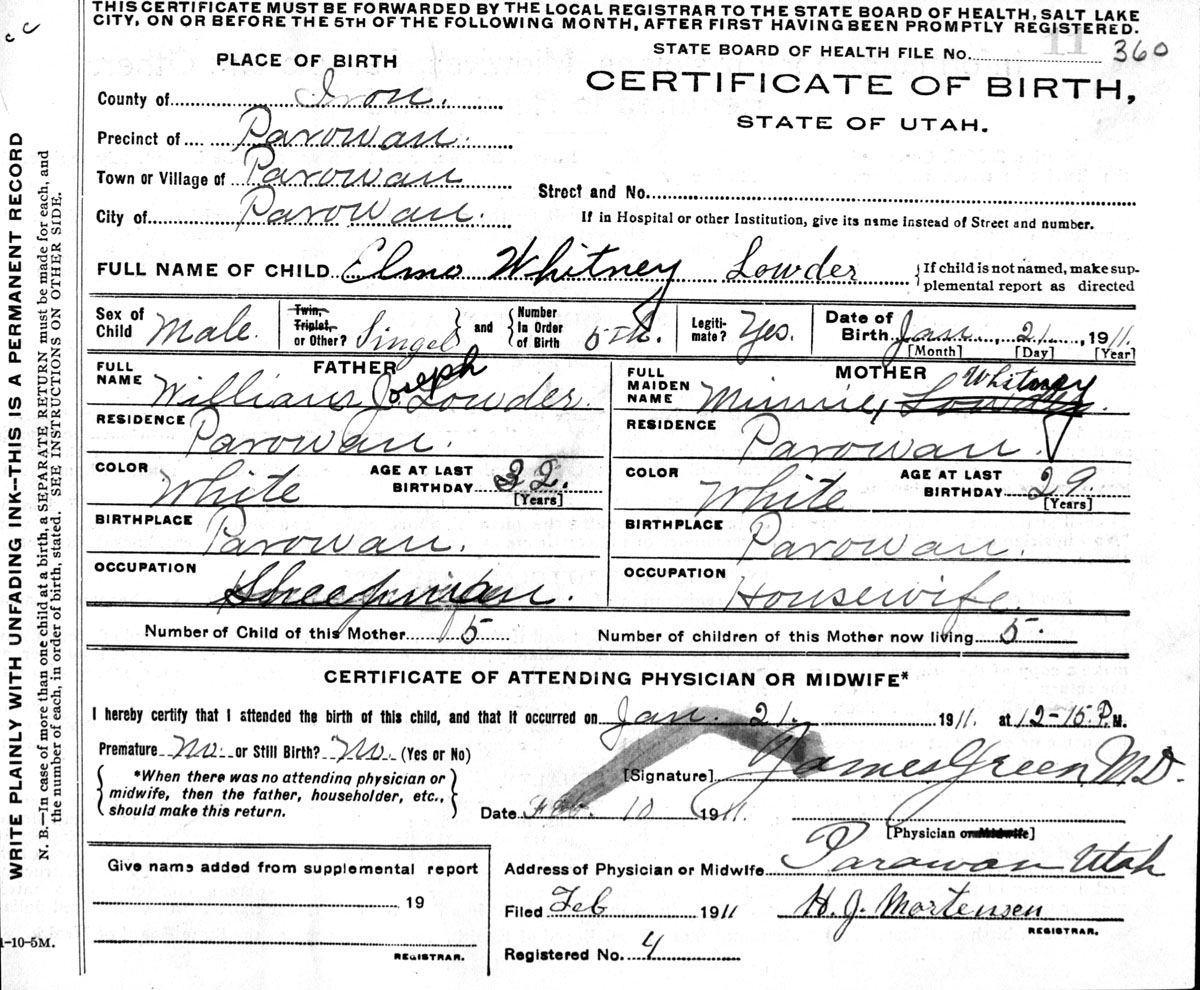 THIS CERTIFICATE MUST BE FORWARDED BY THE LOCAL REGISTRAR TO THE STATE BOARD OF HEALTH, SALT LAKE
CITY, ON OR BEFORE THE 5TH OF THE FOLLOWING MONTH, AFTER FIRST HAVING BEEN PROMPTLY REGISTERED.
STATE BOARD OF HEALTH FILE No. 360
PLACE OF BIRTH
CERTIFICATE OF BIRTH,
STATE OF UTAH.
County of Iron.
Precinct of Parowan.
Town or Village of Parowan
Street and No.
City of Parowan.
If in Hospital or other Institution, give its name instead of Street and number.
FULL NAME OF CHILD Elmo Whitney Lowder
If child is not named, make sup-
plemental report as directed
Sex of Child Male.
Twin, Triplet, or Other? Singel
and
Number In Order of Birth 5th.
Legiti-mate? Yes.
Date of Birth Jan. 21. 1911.
[Month] [Day] [Year]
FATHER
FULL NAME William Joseph Lowder.
RESIDENCE Parowan.
COLOR White
AGE AT LAST BIRTHDAY 32.
[Years]
BIRTHPLACE Parowan.
OCCUPATION
MOTHER
FULL MAIDEN NAME Minnie Lowder. Whitney
RESIDENCE Parowan.
COLOR White
AGE AT LAST BIRTHDAY 29.
[Years]
BIRTHPLACE Parowan.
OCCUPATION Housewife.
Number of Child of this Mother 5
Number of children of this Mother now living 5.
CERTIFICATE OF ATTENDING PHYSICIAN OR MIDWIFE*
I hereby certify that I attended the birth of this child, and that it occurred on Jan. 21. 1911. at 12-15 P. M.
Premature No. or Still Birth? No. (Yes or No)
*When there was no attending physician or
midwife, then the father, householder, etc.,
should make this return.
[Signature] James Green M.D.
Date Feb. 10 1911.
[Physician or Midwife]
Address of Physician or Midwife Parawan Utah
Filed Feb 1911 H. J. Mortensen
REGISTRAR.
Registered No. 4
Give name added from supplemental report
19
REGISTRAR.
1-10-5M.
WRITE PLAINLY WITH UNFADING INK--THIS IS A PERMANENT RECORD
N. B.—In case of more than one child at a birth, a SEPARATE RETURN must be made for each, and
the number of each, in order of birth, stated. SEE INSTRUCTIONS ON OTHER SIDE.